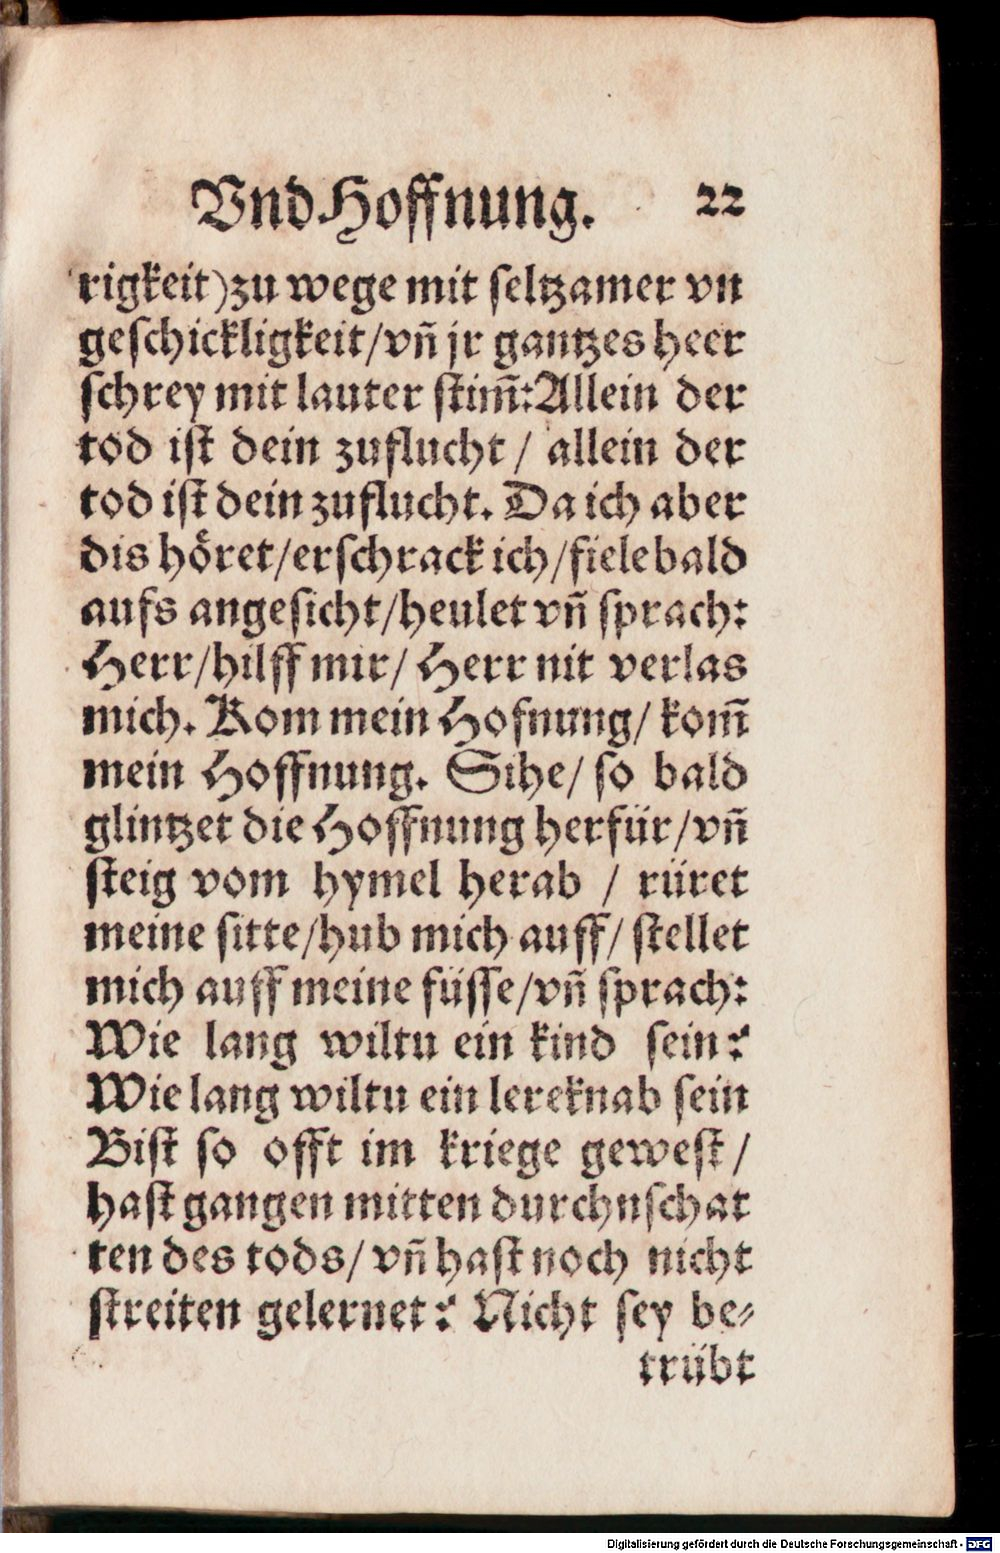 Vnd Hoffnung. 22
rigkeit) zu wege mit seltzamer vn
geschickligkeit/ vn̄ jr gantzes heer
schrey mit lauter stim̄: Allein der
tod ist dein zuflucht/ allein der
tod ist dein zuflucht. Da ich aber
dis höret/ erschrack ich/ fiele bald
aufs angesicht/ heulet vn̄ sprach:
Herr/ hilff mir/ Herr nit verlas
mich. Kom mein Hofnung/ kom̄
mein Hoffnung. Sihe/ so bald
glintzet die Hoffnung herfür/ vn̄
steig vom hymel herab / rüret
meine sitte/ hub mich auff/ stellet
mich auff meine füsse/ vn̄ sprach:
Wie lang wiltu ein kind sein?
Wie lang wiltu ein lereknab sein
Bist so offt im kriege gewest/
hast gangen mitten durchn schat
ten des tods/ vn̄ hast noch nicht
streiten gelernet? Nicht sey be-
trübt
Digitalisierung gefördert durch die Deutsche Forschungsgemeinschaft - DFG